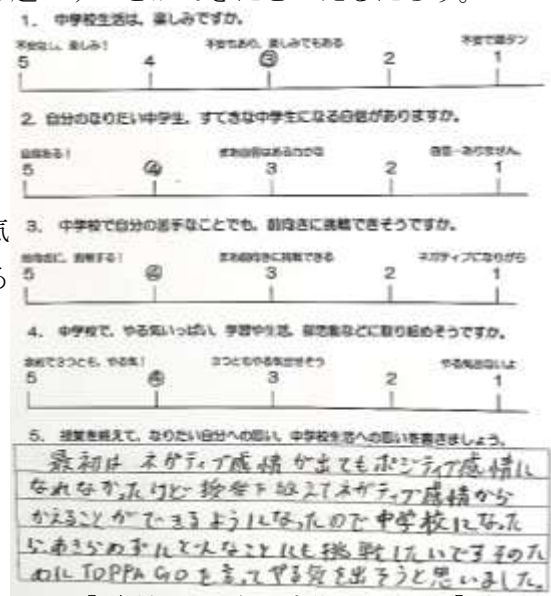 1. 中学校生活は、楽しみですか。
不安なし、楽しみ! 不安もあり、楽しみでもある 不安で頭ダン
5 4 ③ 2 1
2. 自分のなりたい中学生、すてきな中学生になる自信がありますか。
自信ある! まあ自信はあるかな 自信…ありません。
5 ④ 3 2 1
気 3. 中学校で自分の苦手なことでも、前向きに挑戦できそうですか。
前向きに、挑戦する! まあ前向きに挑戦できる ネガティブになりがち
5 ④ 3 2 1
4. 中学校で、やる気いっぱい、学習や生活、部活動などに取り組めそうですか。
3つともやる気出せそう やる気出ないよ
5 ④ 3 2 1
5. 授業を終えて、なりたい自分への思い、中学校生活への思いを書きましょう。
最初は ネガティブ感情が出てもポジティブ感情に
なれなかったけど 授業を終えてネガティブ感情から
かえることができるようになったので中学校になった
らあきらめずにどんなことにも挑戦したいですそのた
めにTOPPA GOを言ってやる気を出そうと思いました。